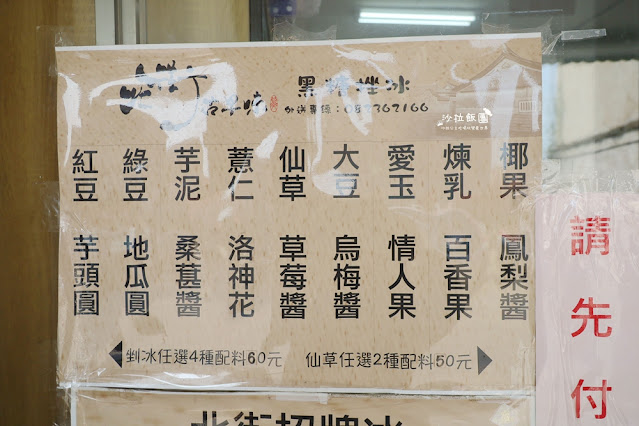 黑糖挫冰
外送專線:082362166
沙拉飯團
椰果
煉乳
愛玉
大豆
仙草
薏仁
芋泥
綠豆
紅豆
鳳梨醬
百香果
情人果
烏梅醬
草莓醬
洛神花
桑葚醬
地瓜圓
芋頭圓
剉冰任選4種配料60元
仙草任選2種配料50元
北街招牌冰
請先付